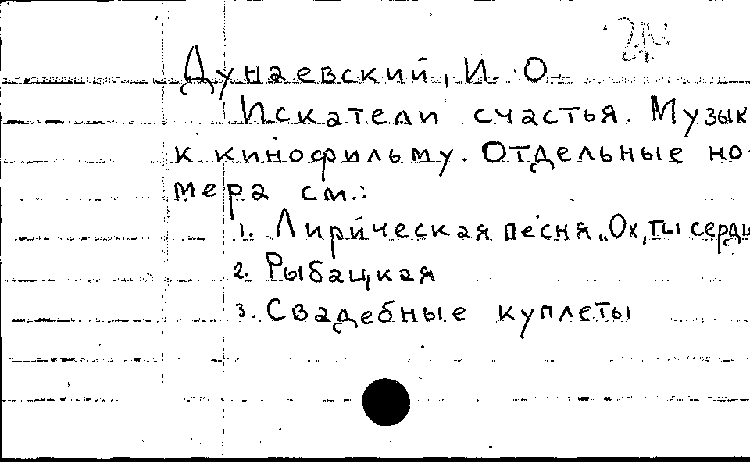 Дунаевский, И. О.
Искатели счастья. Музык
к кинофильму. Отдельные но-
мера см.:
1. Лирическая песня „Ох, ты серди
2. Рыбацкая
3. Свадебные куплеты